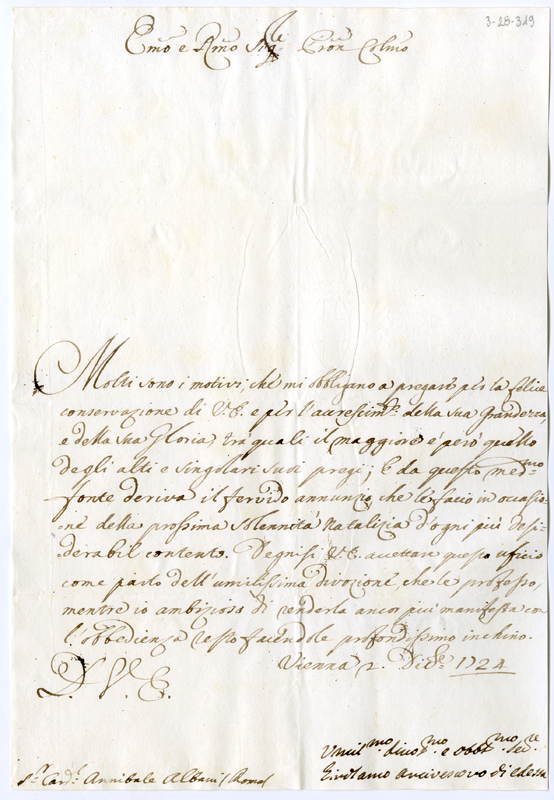 3-28-319
Em̃o e Rm̃o Sig.re Pron Colmo
Molti sono i motivi, che mi obbligano a pregare per la felice
conservazione di V.E. e per l'accrescim.to della sua Grandezza,
e della sua Gloria trà quali il maggiore è però quello
degli alti e singolari suoi pregi; E da questo med.mo
fonte deriva il fervido annunzio, che le facio in occasio-
ne della prossima solennità natalizia d'ogni più desi-
derabil contento. Degnisi V.E. accettare questo ufficio
come parto dell'umilissima divozione, che le professo,
mentre io ambizioso di renderla ancor più manifesta con
l'obbedienza resto facendole profondissimo inchino.
Vienna 2. Dic.e 1724
D. V. E.
Umil.mo divot.mo e obbl.mo ser.re
Girolamo arcivescovo di Edessa
S.r Card.l Annibale Albani Roma